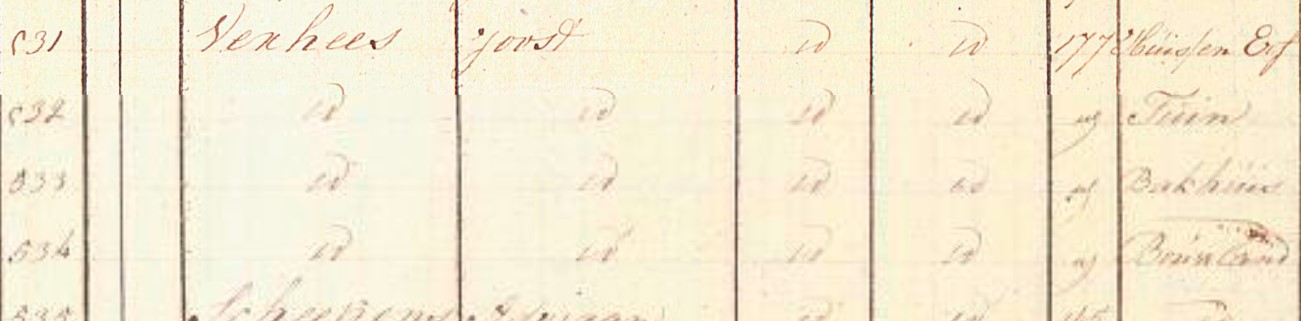 531 Verhees Joost id id 177 Huis en Erf
532 id id id id " Tuin
533 id id id id " Bakhuis
534 id id id id " Bouwland
535 id id